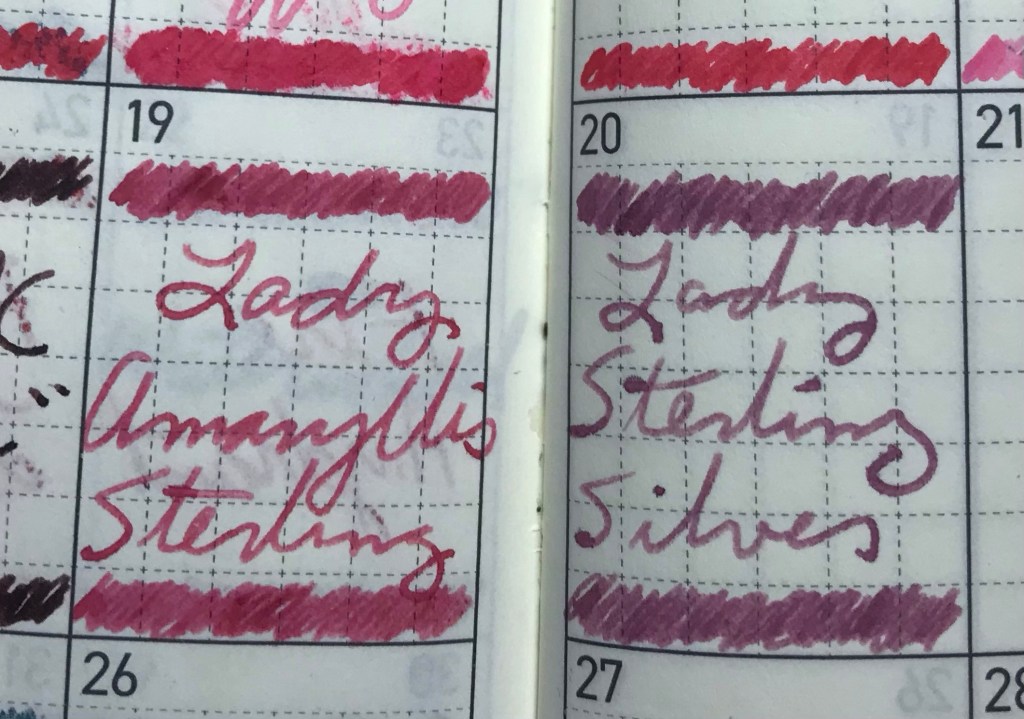 19
20
21
Lady
Amaryllis
Sterling
Lady
Sterling
Silver
26
27
28